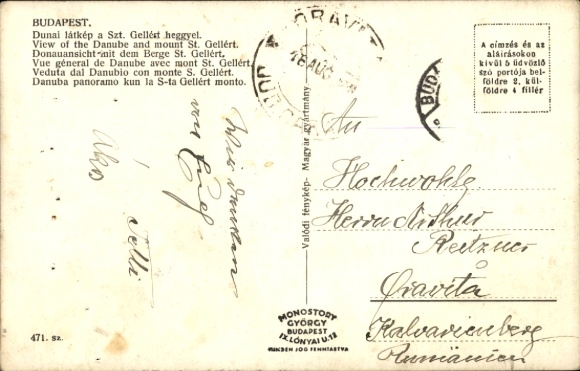 BUDAPEST.
Dunai látkép a Szt. Gellért heggyel.
View of the Danube and mount St. Gellért.
Donauansicht mit dem Berge St. Gellért.
Vue géneral de Danube avec mont St. Gellért.
Veduta dal Danubio con monte S. Gellért.
Danuba panoramo kun la S-ta Gellért monto.
ORAVIT
A címzés és az
aláírásokon
kívül 5 üdvözlő
szó portója bel-
földre 2, kül-
földre 4 fillér
BUDA
Wir danken
Valódi fénykép- Magyar gyártmány
An
Hochwohlg.
Herrn Arthur
Reitzner
Oravița
Kalvarienberg
Rumänien
MONOSTORY
GYÖRGY
BUDAPEST
IX. LÓNYAI U. 12
MINDEN JOG FENNTARTVA
471. sz.